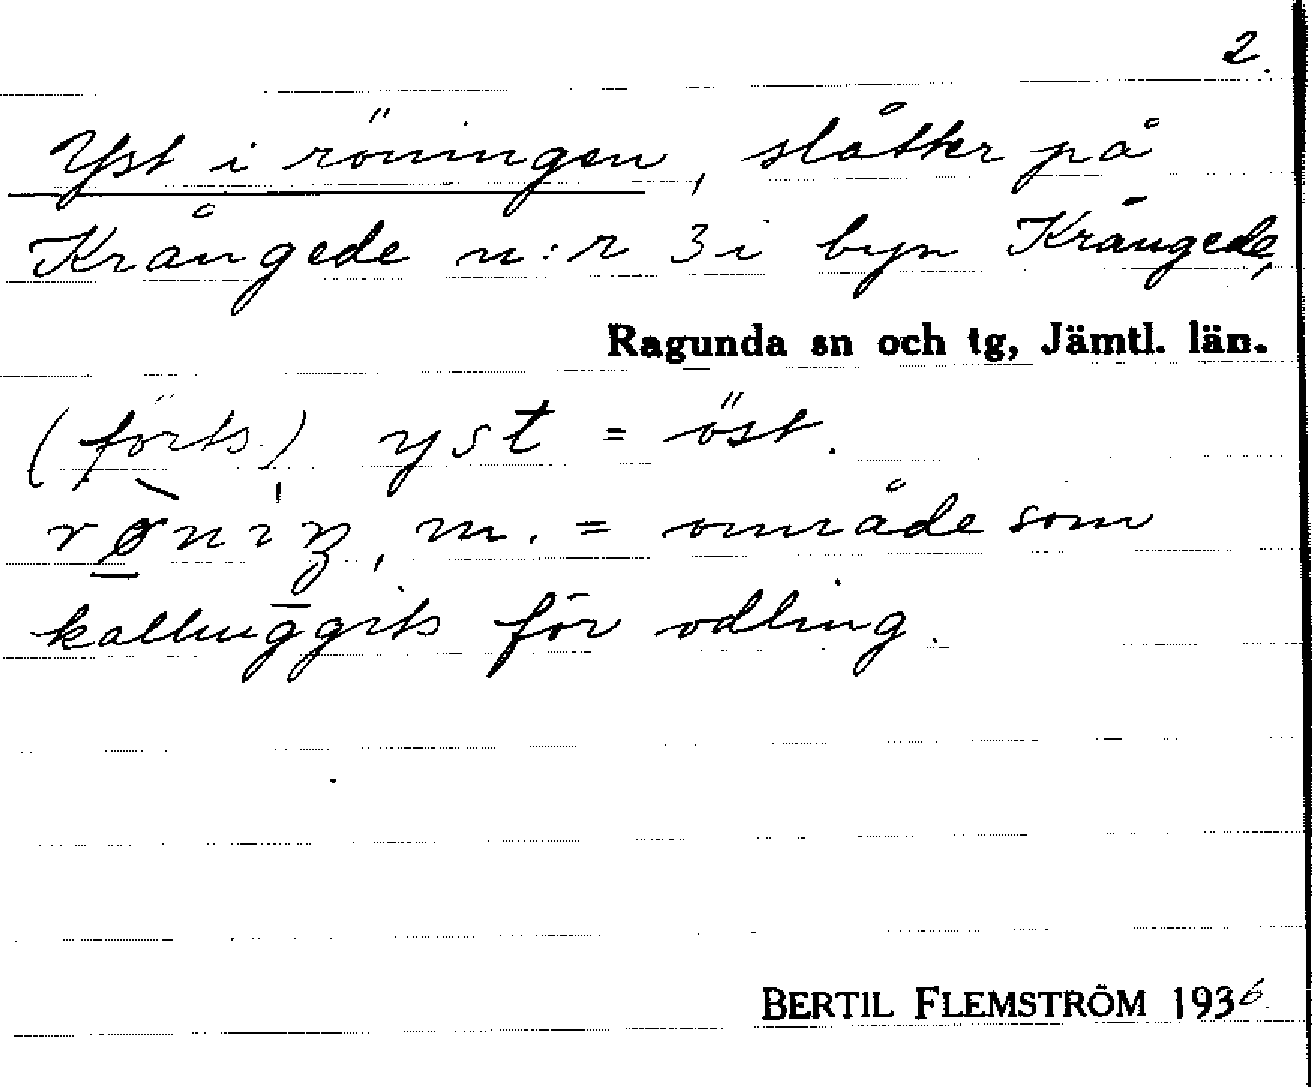 2.
Yst i röningen, slåtter på
Krångede n:r 3 i byn Krångede,
Ragunda sn och tg, Jämtl. län.
(förts.) yst = öst.
rø̀niŋ, m. = område som
kalhuggits för odling.
BERTIL FLEMSTRÖM 1936